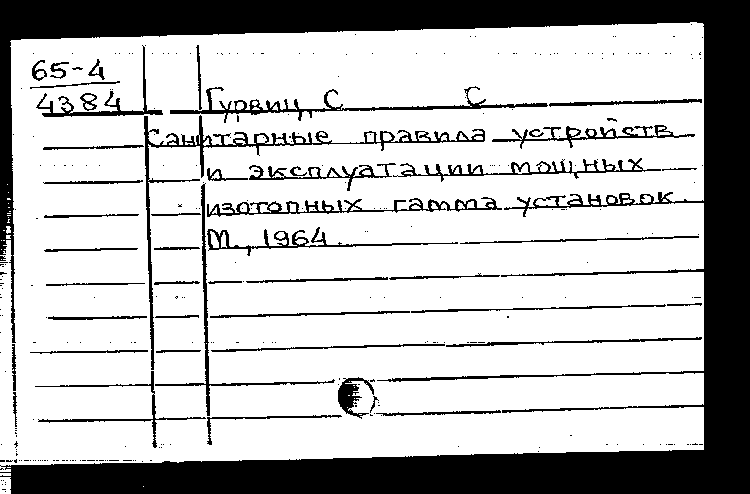 65-4
4384
Гурвиц, С С
Санитарные правила устройств
и эксплуатации мощных
изотопных гамма установок.
М., 1964.